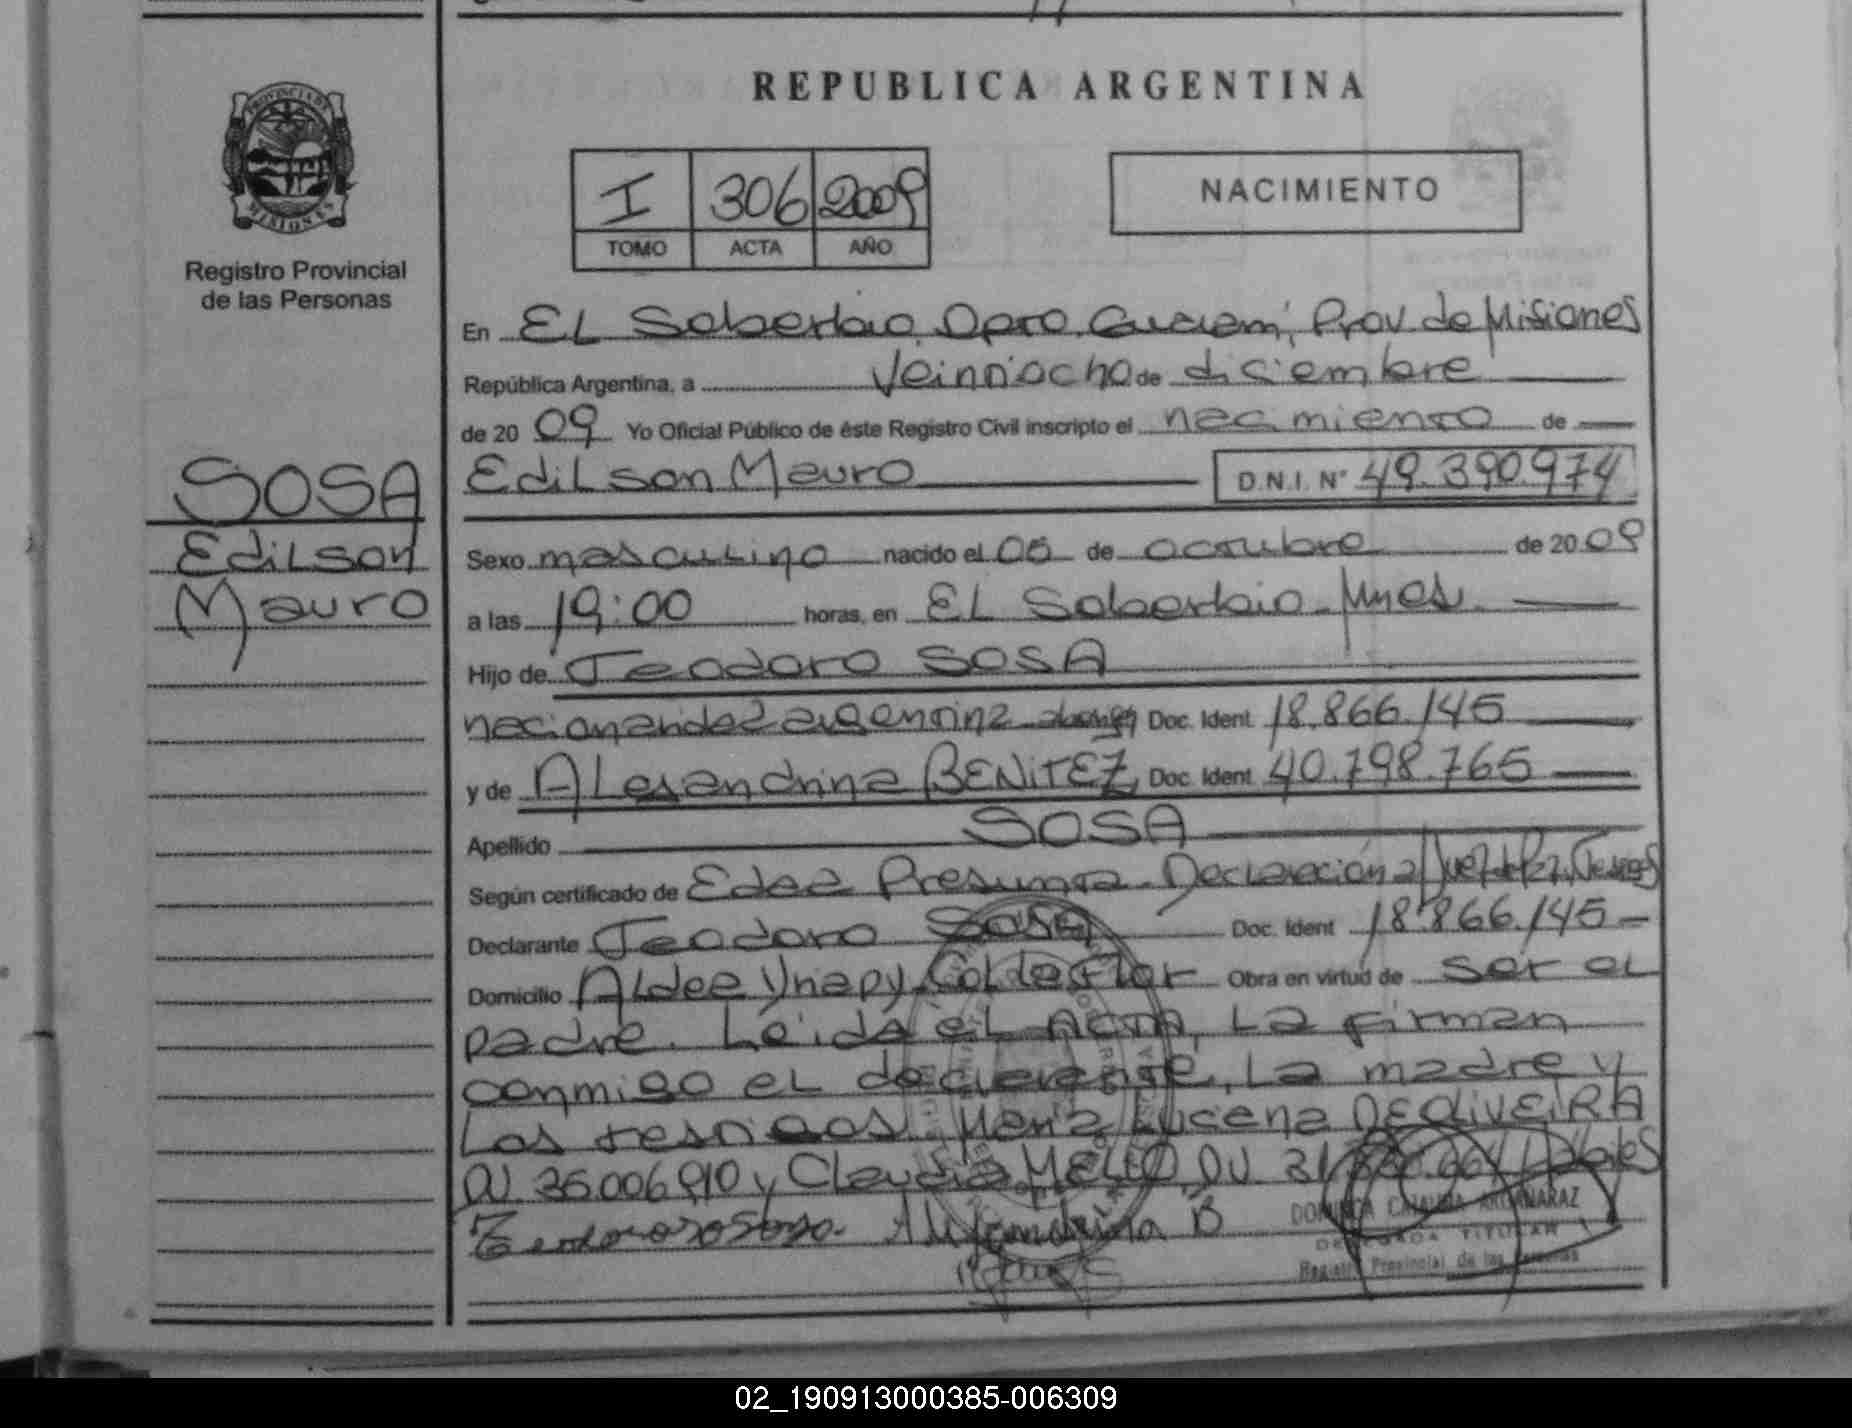 REPUBLICA ARGENTINA
PROVINCIA DE
MISIONES
Registro Provincial
de las Personas
I 306 2009
TOMO ACTA AÑO
NACIMIENTO
SOSA
Edilson
Mauro
En El Soberbio, Dpto. Guaraní, Prov. de Misiones
República Argentina, a Veintiocho de diciembre
de 20 09 Yo Oficial Público de éste Registro Civil inscripto el nacimiento de
Edilson Mauro D.N.I. N° 49.390.974
Sexo masculino nacido el 05 de octubre de 20 09
a las 19:00 horas, en El Soberbio Mnes.
Hijo de Teodoro SOSA
argentina Doc. Ident. 18.866.145
y de Alesandrina BENITEZ Doc. Ident. 40.798.765
Apellido SOSA
Según certificado de Edad Presunta. Declaración
Declarante Teodoro SOSA Doc. Ident 18.866.145
Domicilio Aldea Col de Flor Obra en virtud de ser el
padre. Leída el Acta, la firman
conmigo el declarante, la madre y
los testigos María Lucena DE OLIVEIRA
Claudia
Alejandrina B
CLAUDIA
DELEGADA TITULAR
Registro Provincial de las Personas
02_190913000385-006309